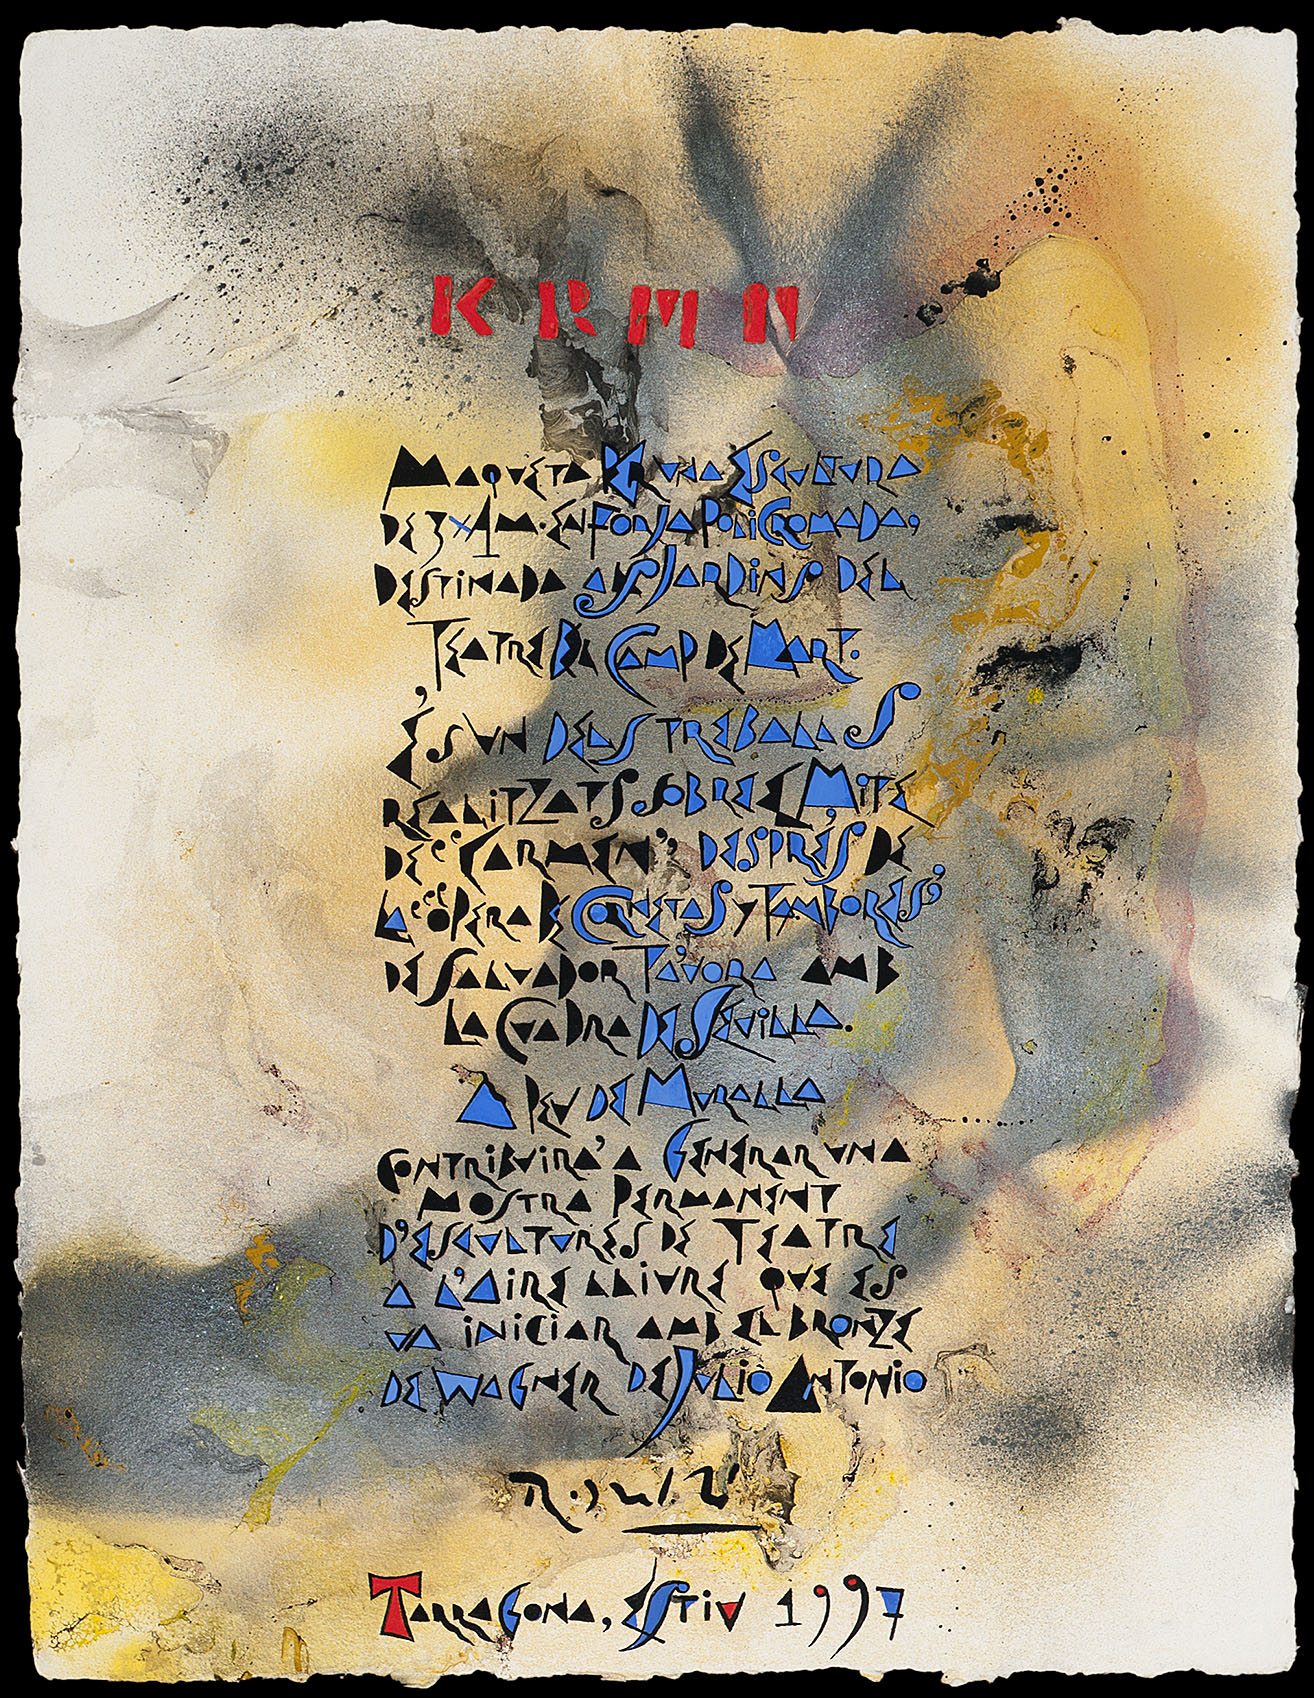 KRMN
Maqueta per una Escultura
de 3x1 m. en Forja Policromada,
destinada als Jardins del
Teatre del Camp de Mart.
És un dels treballs
realitzats sobre el Mite
de "Carmen", després de
la "Opera de Cornetas y Tambores"
de Salvador Távora amb
La Cuadra de Sevilla.
A Peu de Muralla
contribuirà a Generar una
mostra permanent
d'escultures de Teatre
a l'Aire lliure que es
va iniciar amb el bronze
de Wagner de Julio Antonio
Tarragona, Estiu 1997